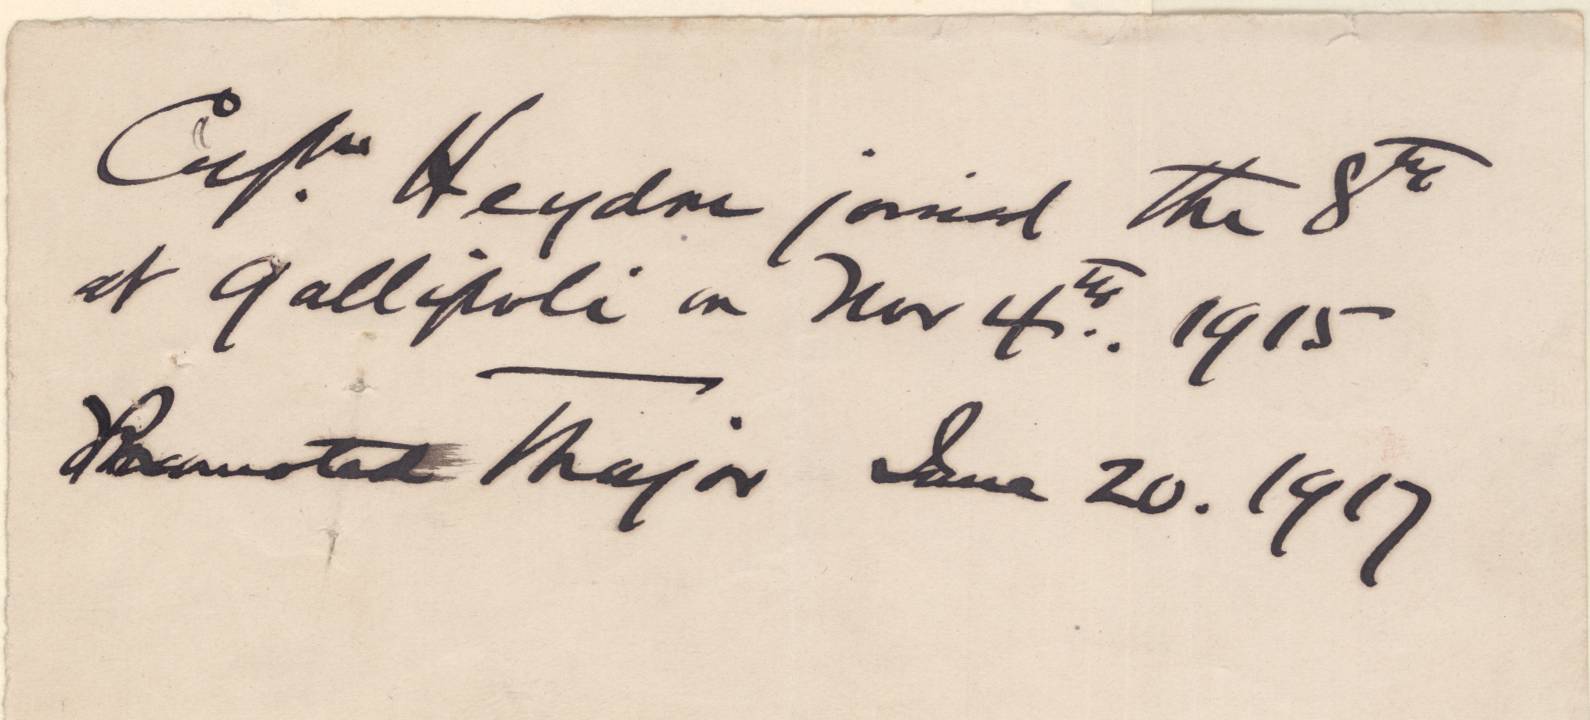 Captn. Heydon joined the 8th
at Gallipoli on Nov 4th. 1915
Promoted Major June 20. 1917